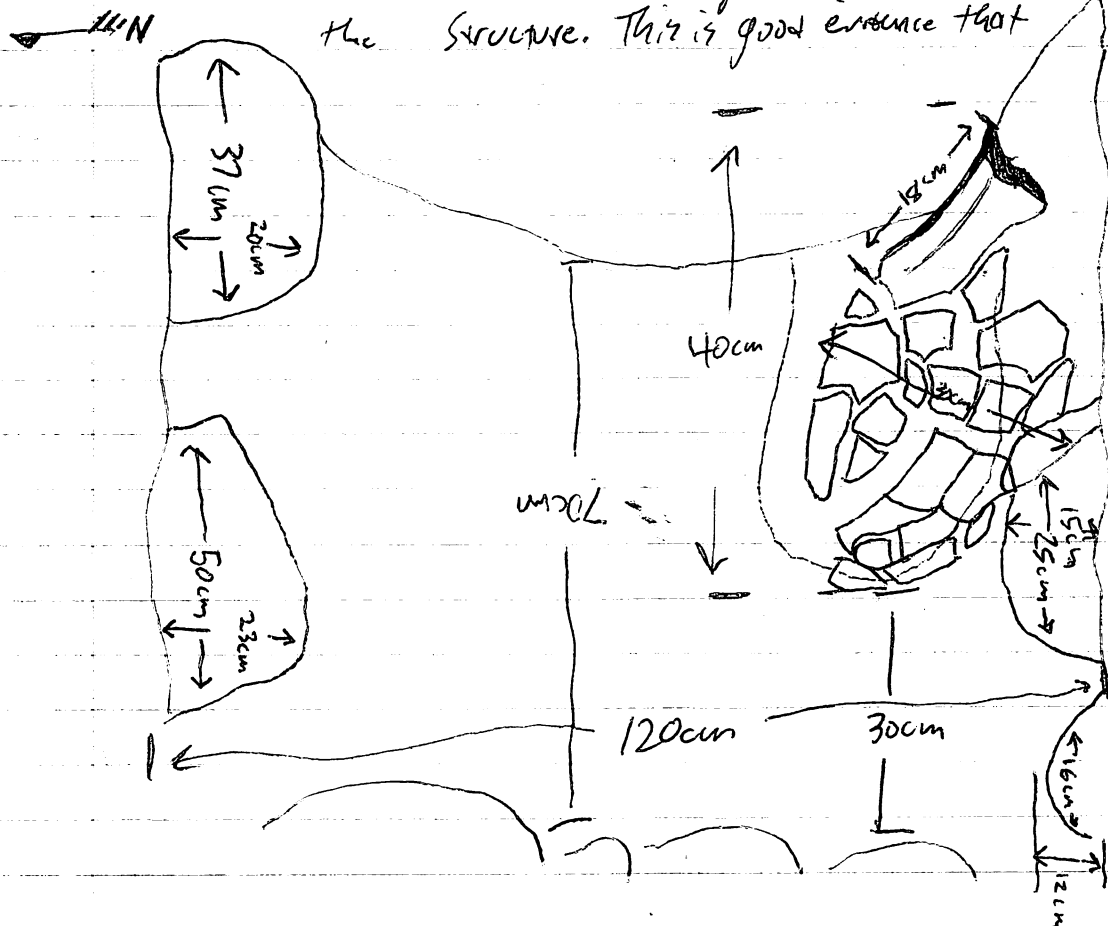 N
the structure. This is good evidence that
37cm
20cm
18cm
40cm
70cm
15cm
25cm
50cm
23cm
120cm
30cm
16cm
12cm